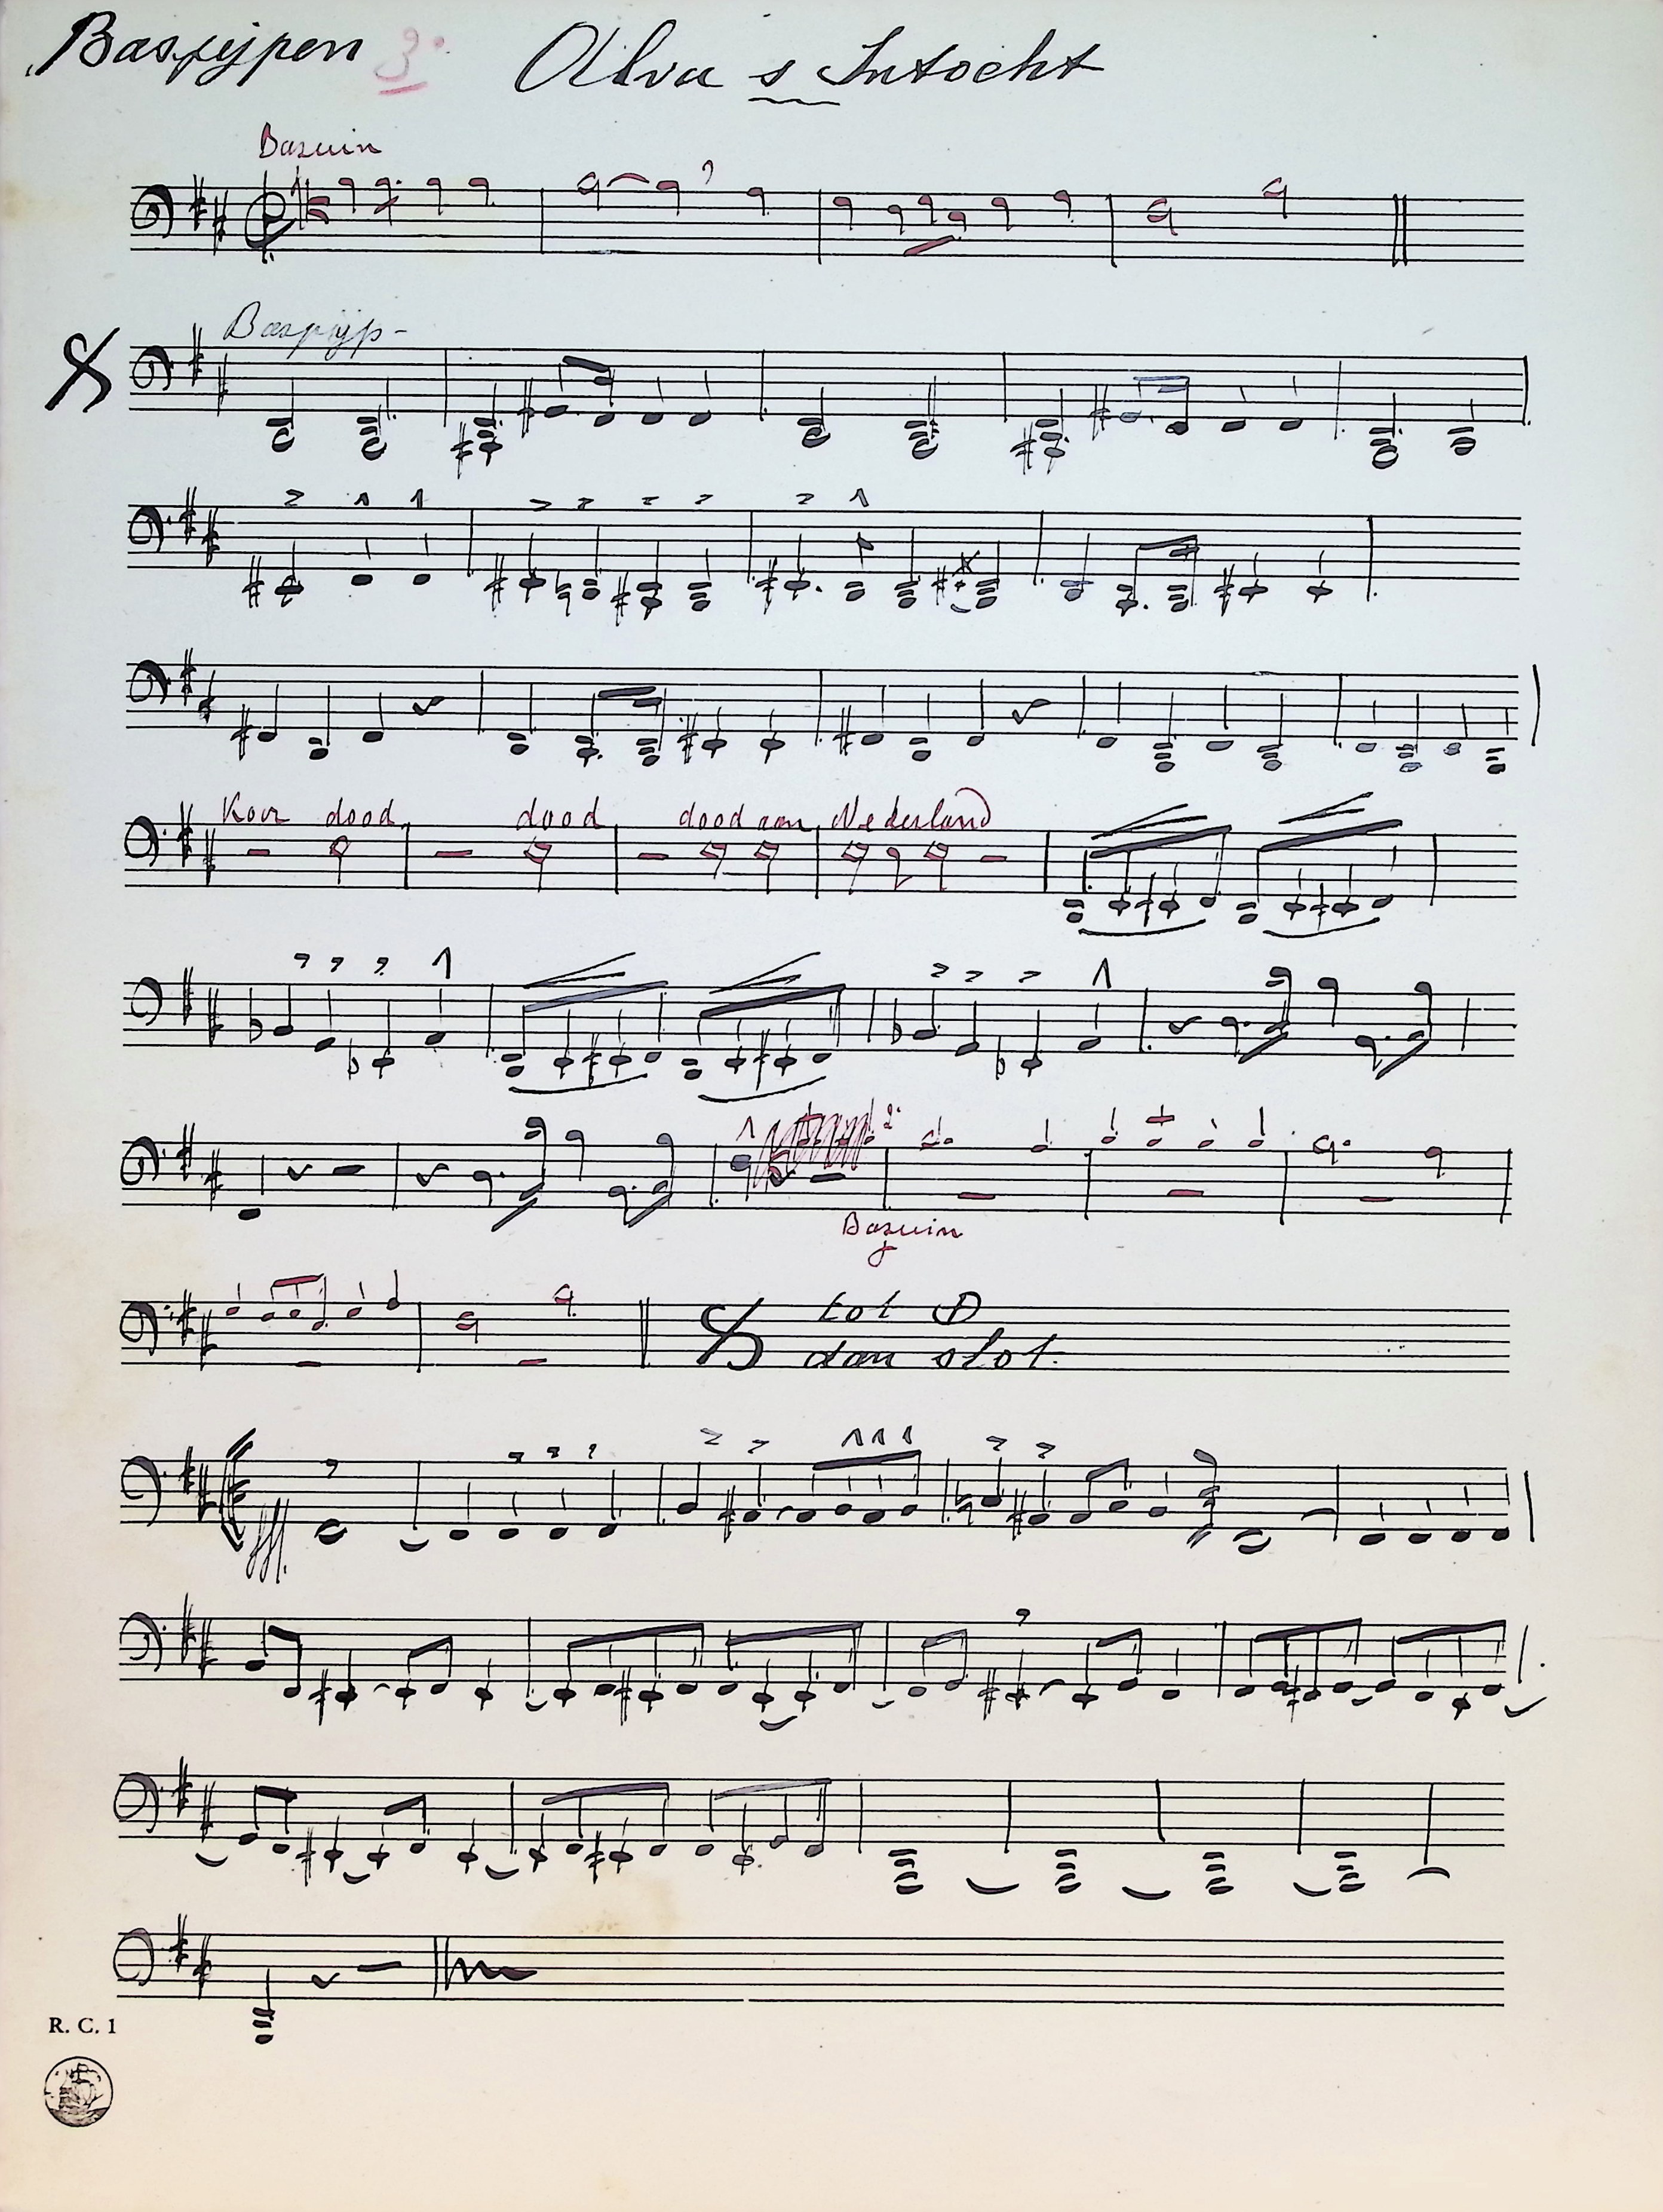 Baspijpen 3: Alva's Intocht
Bazuin
Baspijp-
Koor dood dood dood aan Nederland
Bazuin
tot
dan slot.
fff.
R. C. 1